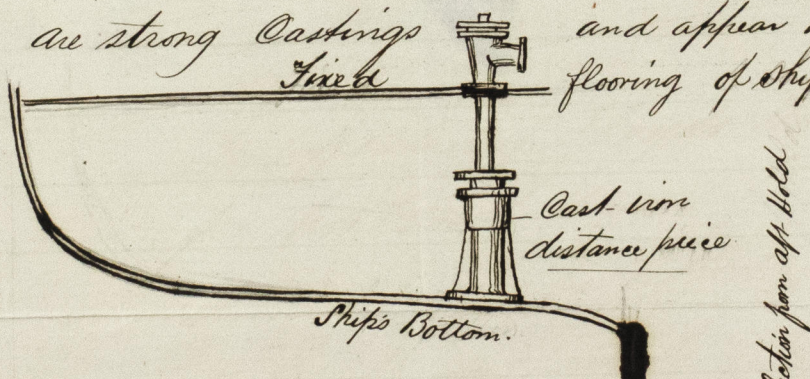 are strong Castings and appear
Fixed flooring of ship
Cast iron
distance piece
Ship's Bottom.
from aft Hold